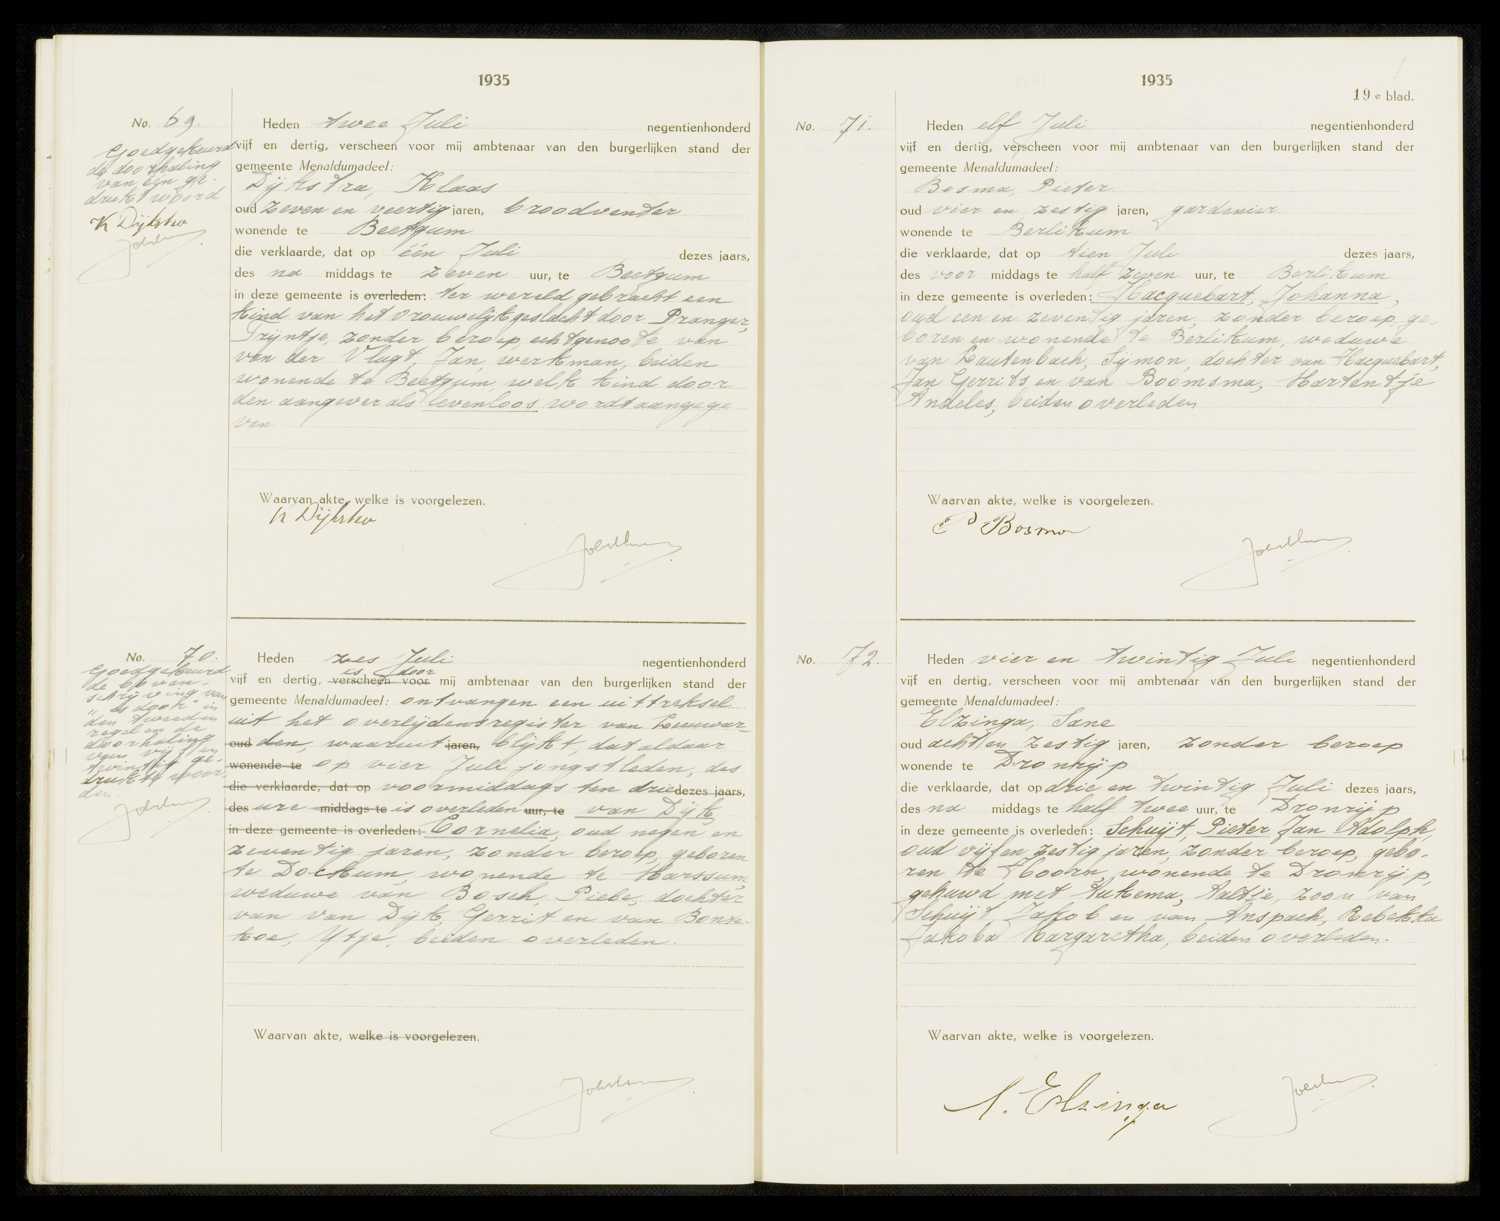 1935
No. 69.
Goedgekeurd
de doorhaling
van een ge-
drukt woord
K Dijkstra
Heden twee Juli negentienhonderd
vijf en dertig, verscheen voor mij ambtenaar van den burgerlijken stand der
gemeente Menaldumadeel:
Dijkstra, Klaas
oud zeven en veertig jaren, broodventer
wonende te Beetgum
die verklaarde, dat op één Juli dezes jaars,
des na middags te zeven uur, te Beetgum
in deze gemeente is overleden: ter wereld gebracht een
kind van het vrouwelijk geslacht door Pranger,
Trijntje, zonder beroep, echtgenoote van
van der Vlugt, Jan, werkman, beiden
wonende te Beetgum, welk kind door
den aangever als levenloos wordt aangege-
ven
Waarvan akte, welke is voorgelezen.
K Dijkstra
No. 70.
Goedgekeurd
de boven-
schrijving van
"is door" in
den tweeden
regel en de
doorhaling
van vijf en
twintig ge-
drukte woor-
den.
Heden zes Juli negentienhonderd
is door
vijf en dertig, verscheen voor mij ambtenaar van den burgerlijken stand der
gemeente Menaldumadeel: ontvangen een uittreksel
uit het overlijdensregister van Leeuwar-
oud den, waaruit jaren, blijkt, dat aldaar
wonende te op vier Juli jongstleden, des
die verklaarde, dat op voormiddags ten drie dezes jaars,
des ure middags te is overleden uur, te van Dijk,
in deze gemeente is overleden: Cornelia, oud negen en
zeventig jaren, zonder beroep, geboren
te Dockum, wonende te Marssum,
weduwe van Bosch, Piebe, dochter
van van Dijk, Gerrit en van Bonne-
koe, Ytje, beiden overleden.
Waarvan akte, welke is voorgelezen.
1935
19e blad.
No. 71.
Heden elf Juli negentienhonderd
vijf en dertig, verscheen voor mij ambtenaar van den burgerlijken stand der
gemeente Menaldumadeel:
Bosma, Pieter
oud vier en zestig jaren, gardenier
wonende te Berlikum
die verklaarde, dat op tien Juli dezes jaars,
des voor middags te half zeven uur, te Berlikum
in deze gemeente is overleden: Hacquebart, Johanna,
oud een en zeventig jaren, zonder beroep, ge-
boren en wonende te Berlikum, weduwe
van Lautenbach, Symon, dochter van Hacquebart,
Jan Gerrits en van Boomsma, Martentje
Andeles, beiden overleden
Waarvan akte, welke is voorgelezen.
P Bosma
No. 72.
Heden vier en twintig Juli negentienhonderd
vijf en dertig, verscheen voor mij ambtenaar van den burgerlijken stand der
gemeente Menaldumadeel:
Elzinga, Sane
oud acht en zestig jaren, zonder beroep
wonende te Dronrijp
die verklaarde, dat op drie en twintig Juli dezes jaars,
des na middags te half twee uur, te Dronrijp
in deze gemeente is overleden: Schuijt, Pieter Jan Adolph,
oud vijf en zestig jaren, zonder beroep, gebo-
ren te Hoorn, wonende te Dronrijp,
gehuwd met Aukema, Aaltje, zoon van
Schuijt, Jakob en van Anspach, Rebekka
Jakoba Margaretha, beiden overleden.
Waarvan akte, welke is voorgelezen.
S. Elzinga